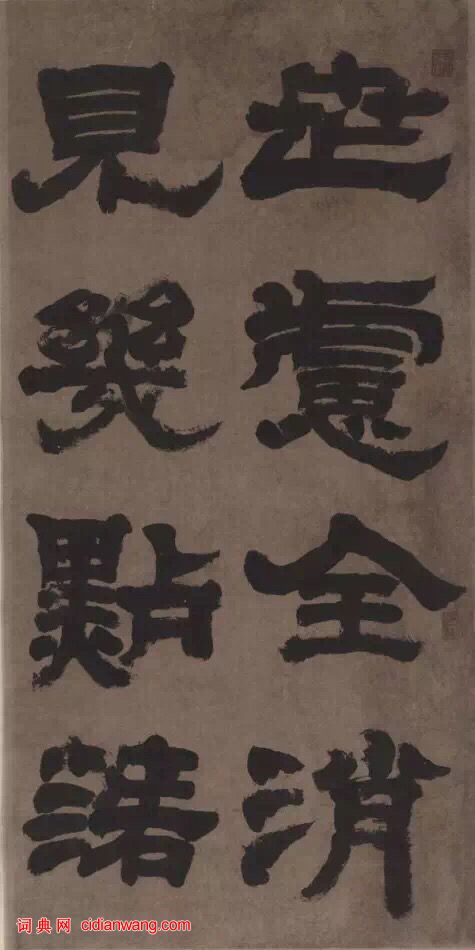 世慮全消
見幾點渚
词典网 cidianwang.com